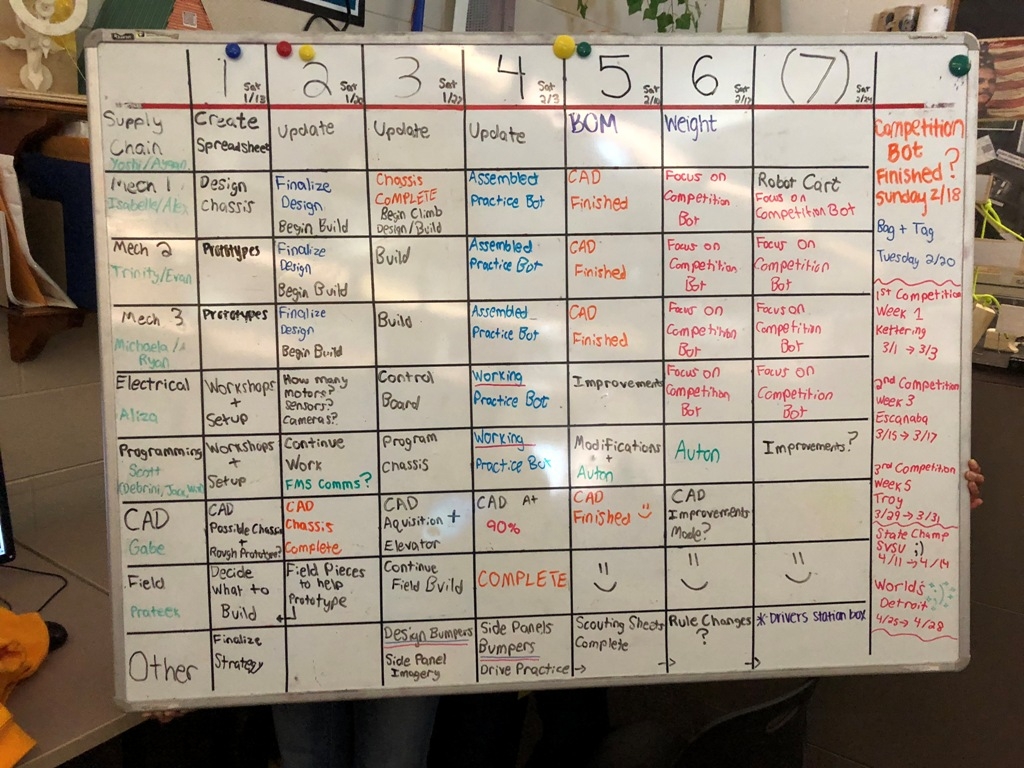 1 Sat 1/13
2 Sat 1/20
3 Sat 1/27
4 Sat 2/3
5 Sat 2/10
6 Sat 2/17
(7) Sat 2/24
Supply Chain
Yoshi/Ayaan
Create Spreadsheet
Update
Update
Update
BOM
Weight
Mech 1
Isabelle/Alex
Design Chassis
Finalize Design
Begin Build
Chassis COMPLETE
Begin Climb
Design/Build
Assembled
Practice Bot
CAD
Finished
Focus on
Competition
Bot
Robot Cart
Focus on
Competition Bot
Mech 2
Trinity/Evan
Prototypes
Finalize
Design
Begin Build
Build
Assembled
Practice Bot
CAD
Finished
Focus on
Competition
Bot
Focus on
Competition
Bot
Mech 3
Michaela/
Ryan
Prototypes
Finalize
Design
Begin Build
Build
Assembled
Practice Bot
CAD
Finished
Focus on
Competition
Bot
Focus on
Competition
Bot
Electrical
Aliza
Workshops
+
Setup
How many
motors?
Sensors?
Cameras?
Control
Board
Working
Practice Bot
Improvements
Focus on
Competition
Bot
Focus on
Competition
Bot
Programming
Scott
(Debrini, Jack,
Workshops
+
Setup
Continue
Work
FMS Comms?
Program
Chassis
Working
Practice Bot
Modifications
+
Auton
Auton
Improvements?
CAD
Gabe
CAD
Possible Chassis
+
Rough Prototype?
CAD
Chassis
Complete
CAD
Aquisition +
Elevator
CAD At
90%
CAD
Finished :)
CAD
Improvements
Made?
Field
Prateek
Decide
what to
Build
Field Pieces
to help
Prototype
Continue
Field Build
COMPLETE
Other
Finalize
Strategy
Design Bumpers
Side Panel
Imagery
Side Panels
Bumpers
Drive Practice →
Scouting Sheets
Complete
Rule Changes
?
*Drivers Station box
Competition
Bot
Finished?
Sunday 2/18
Bag + Tag
Tuesday 2/20
1st Competition
Week 1
Kettering
3/1 → 3/3
2nd Competition
Week 3
Escanaba
3/15 → 3/17
3rd Competition
Week 5
Troy
3/29 → 3/31
State Champ
SVSU ;)
4/11 → 4/14
Worlds
Detroit
4/25 → 4/28